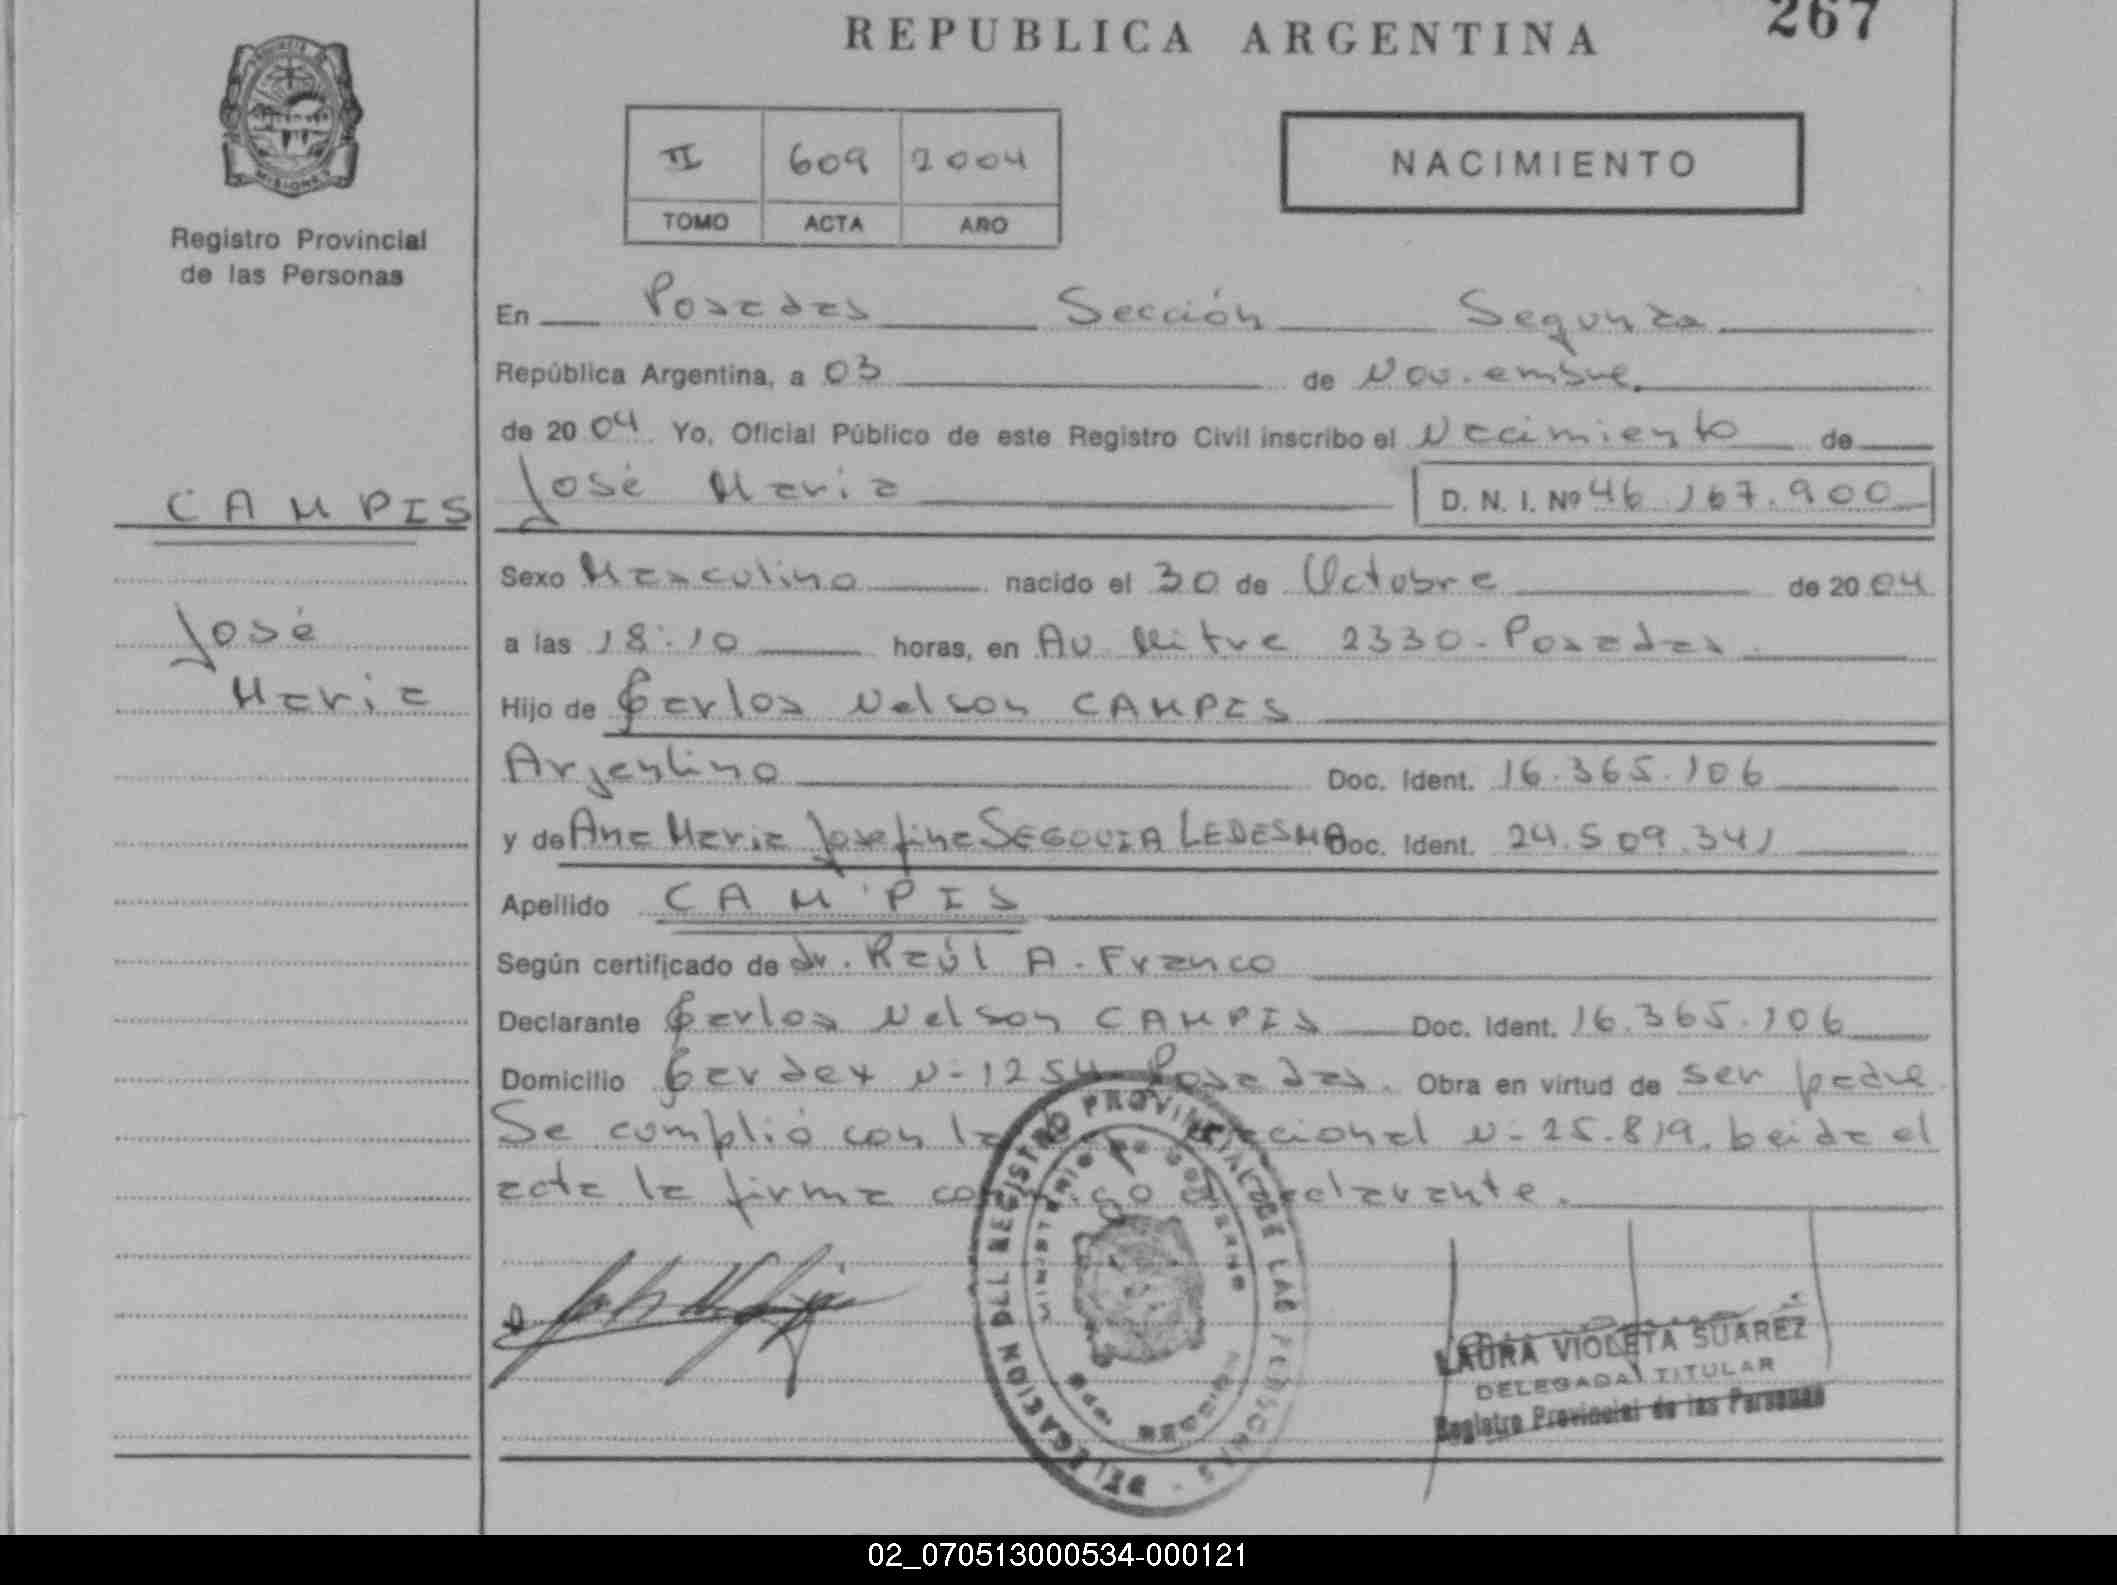 REPUBLICA ARGENTINA
267
MISIONES
Registro Provincial
de las Personas
II 609 2004
TOMO ACTA AÑO
NACIMIENTO
En Posadas Sección Segunda
República Argentina, a 03 de Noviembre
de 2004 Yo, Oficial Público de este Registro Civil inscribo el Nacimiento de
CAMPIS
José María
D. N. I. Nº 46.167.900
Sexo Masculino nacido el 30 de Octubre de 2004
José
María
a las 18:10 horas, en Av. Mitre 2330 - Posadas
Hijo de Carlos Nelson CAMPIS
Argentino Doc. Ident. 16.365.106
y de Ana Maria Josefina SEGOVIA LEDESMA Doc. Ident. 24.509.341
Apellido CAMPIS
Según certificado de dr. Raúl A. Franco
Declarante Carlos Nelson CAMPIS Doc. Ident. 16.365.106
Domicilio N-1254 Posadas. Obra en virtud de ser padre
Se cumplió con la nacional N-25.819. Leida el
acta la firma conmigo el declarante.
DELEGACION DEL REGISTRO PROVINCIAL DE LAS PERSONAS
MINISTERIO DE GOBIERNO
SECCION
LAURA VIOLETA SUAREZ
DELEGADA TITULAR
Registro Provincial de las Personas
02_070513000534-000121